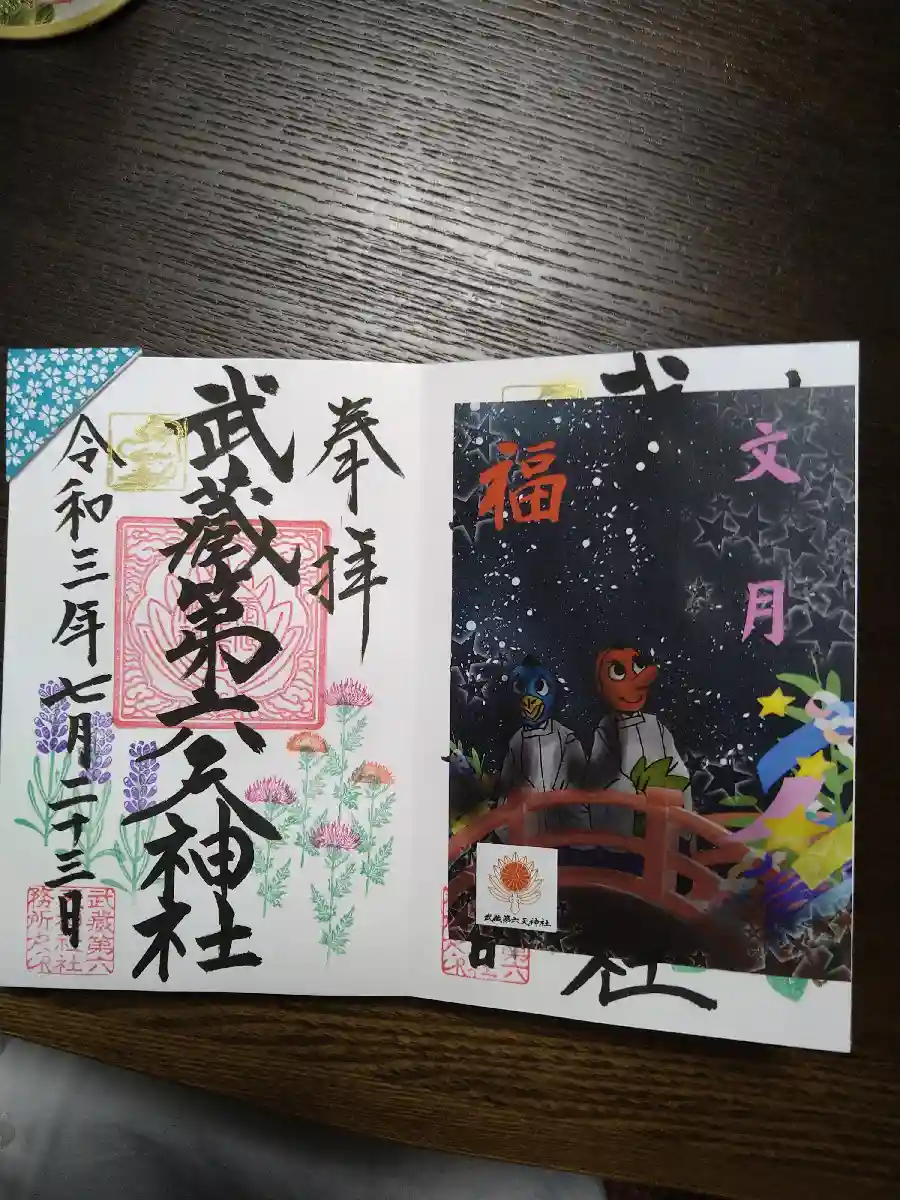 奉拝
武蔵第六天神社
令和三年七月二十三日
武蔵第六
務所之印
文月
福
武蔵第六天神社